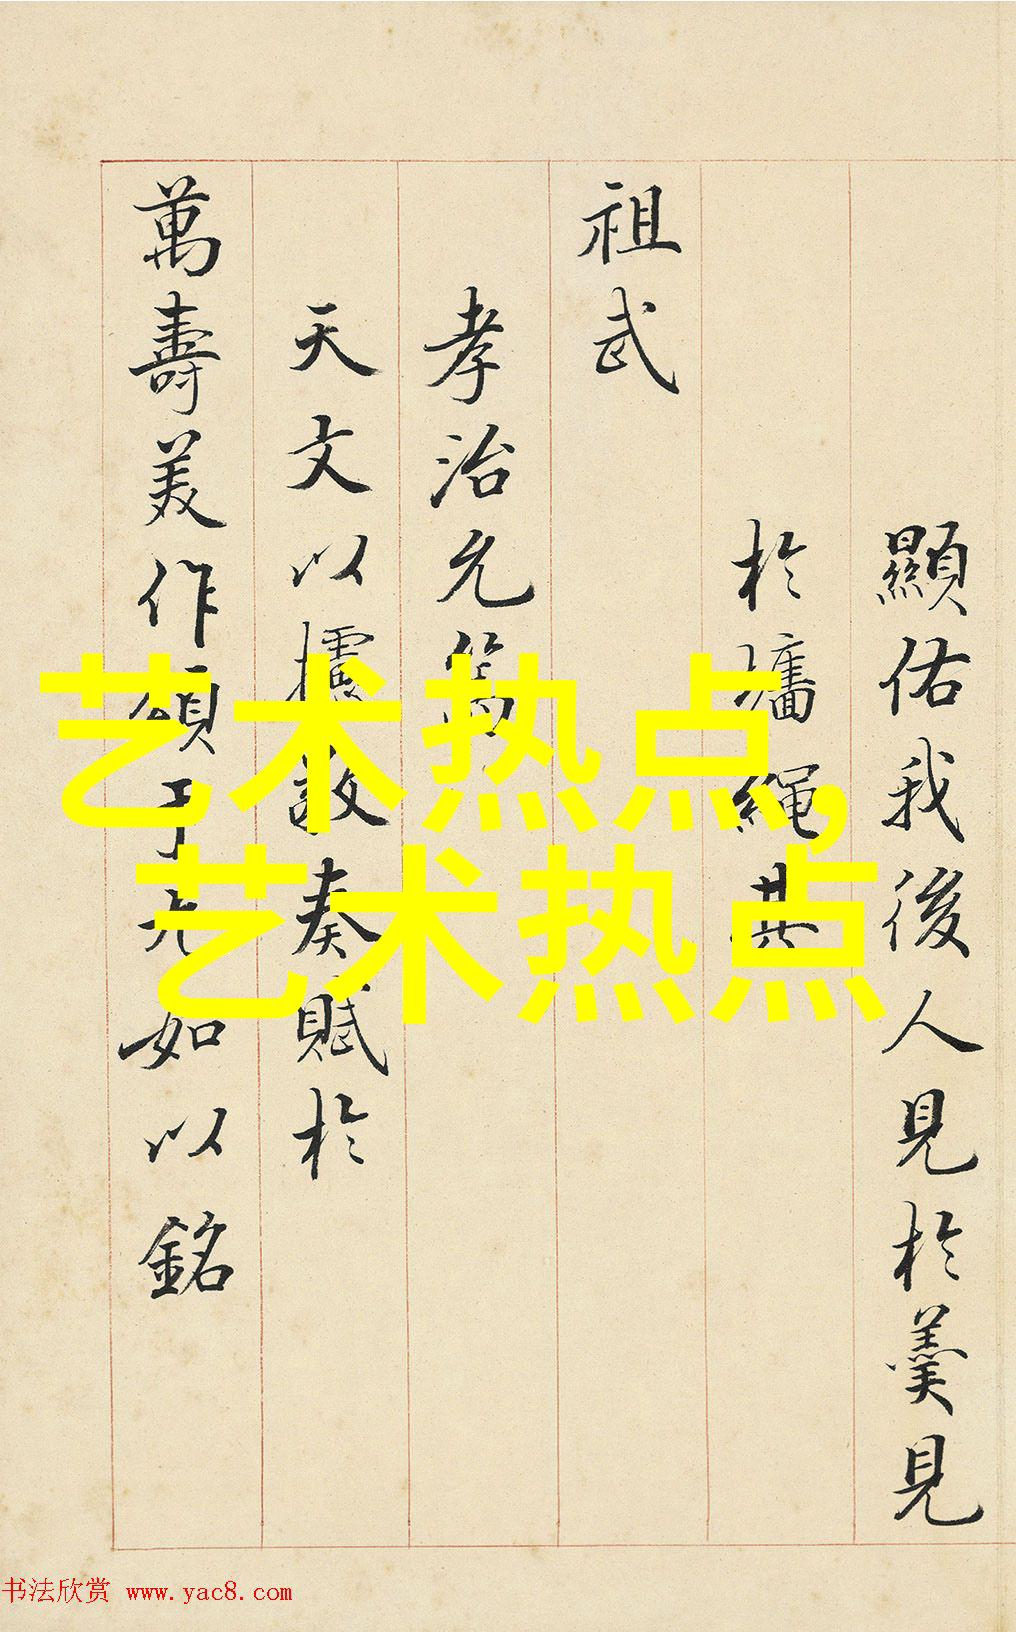 顯佑我後人見於羹見
於墻繩其
祖武
孝治允篤
天文以攄敷奏賦於
萬壽美作頌
如以銘
艺术热点,
艺术热点
书法欣赏 www.yac8.com